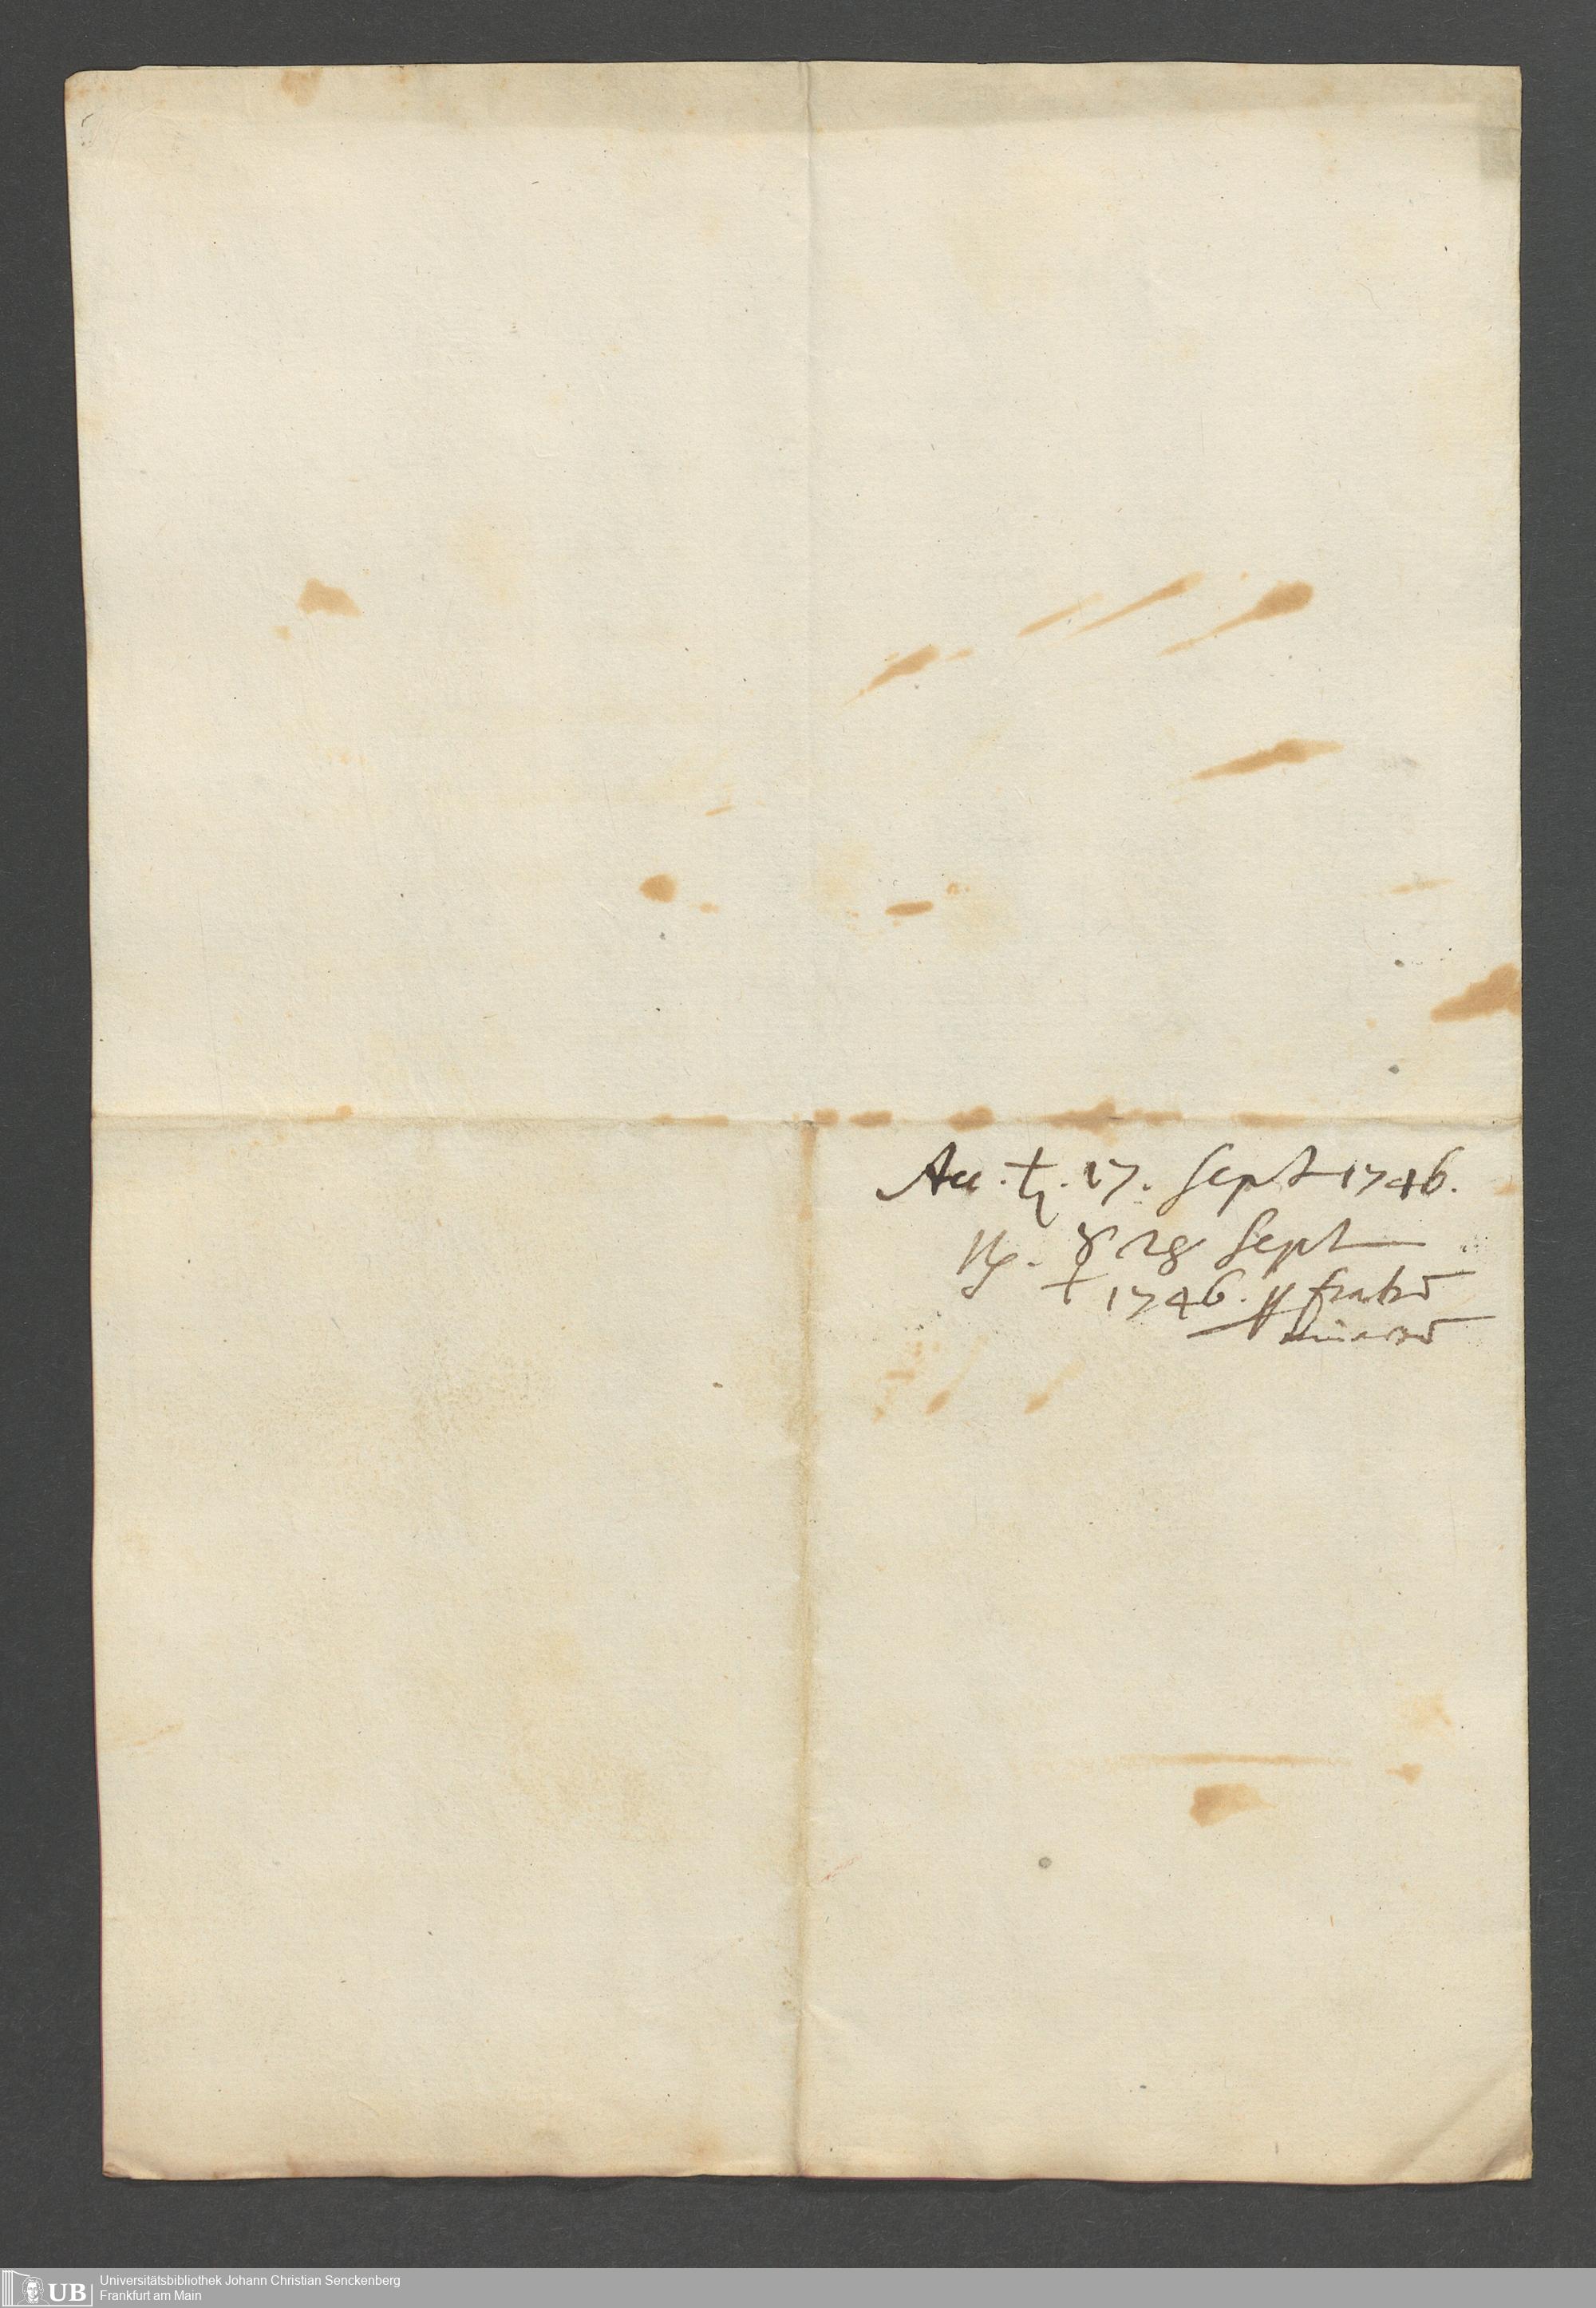 Acc. ♄. 17. Sept 1746.
Rsp. ☿ 28 Sept
1746. fratr
Universitätsbibliothek Johann Christian Senckenberg
Frankfurt am Main
UB